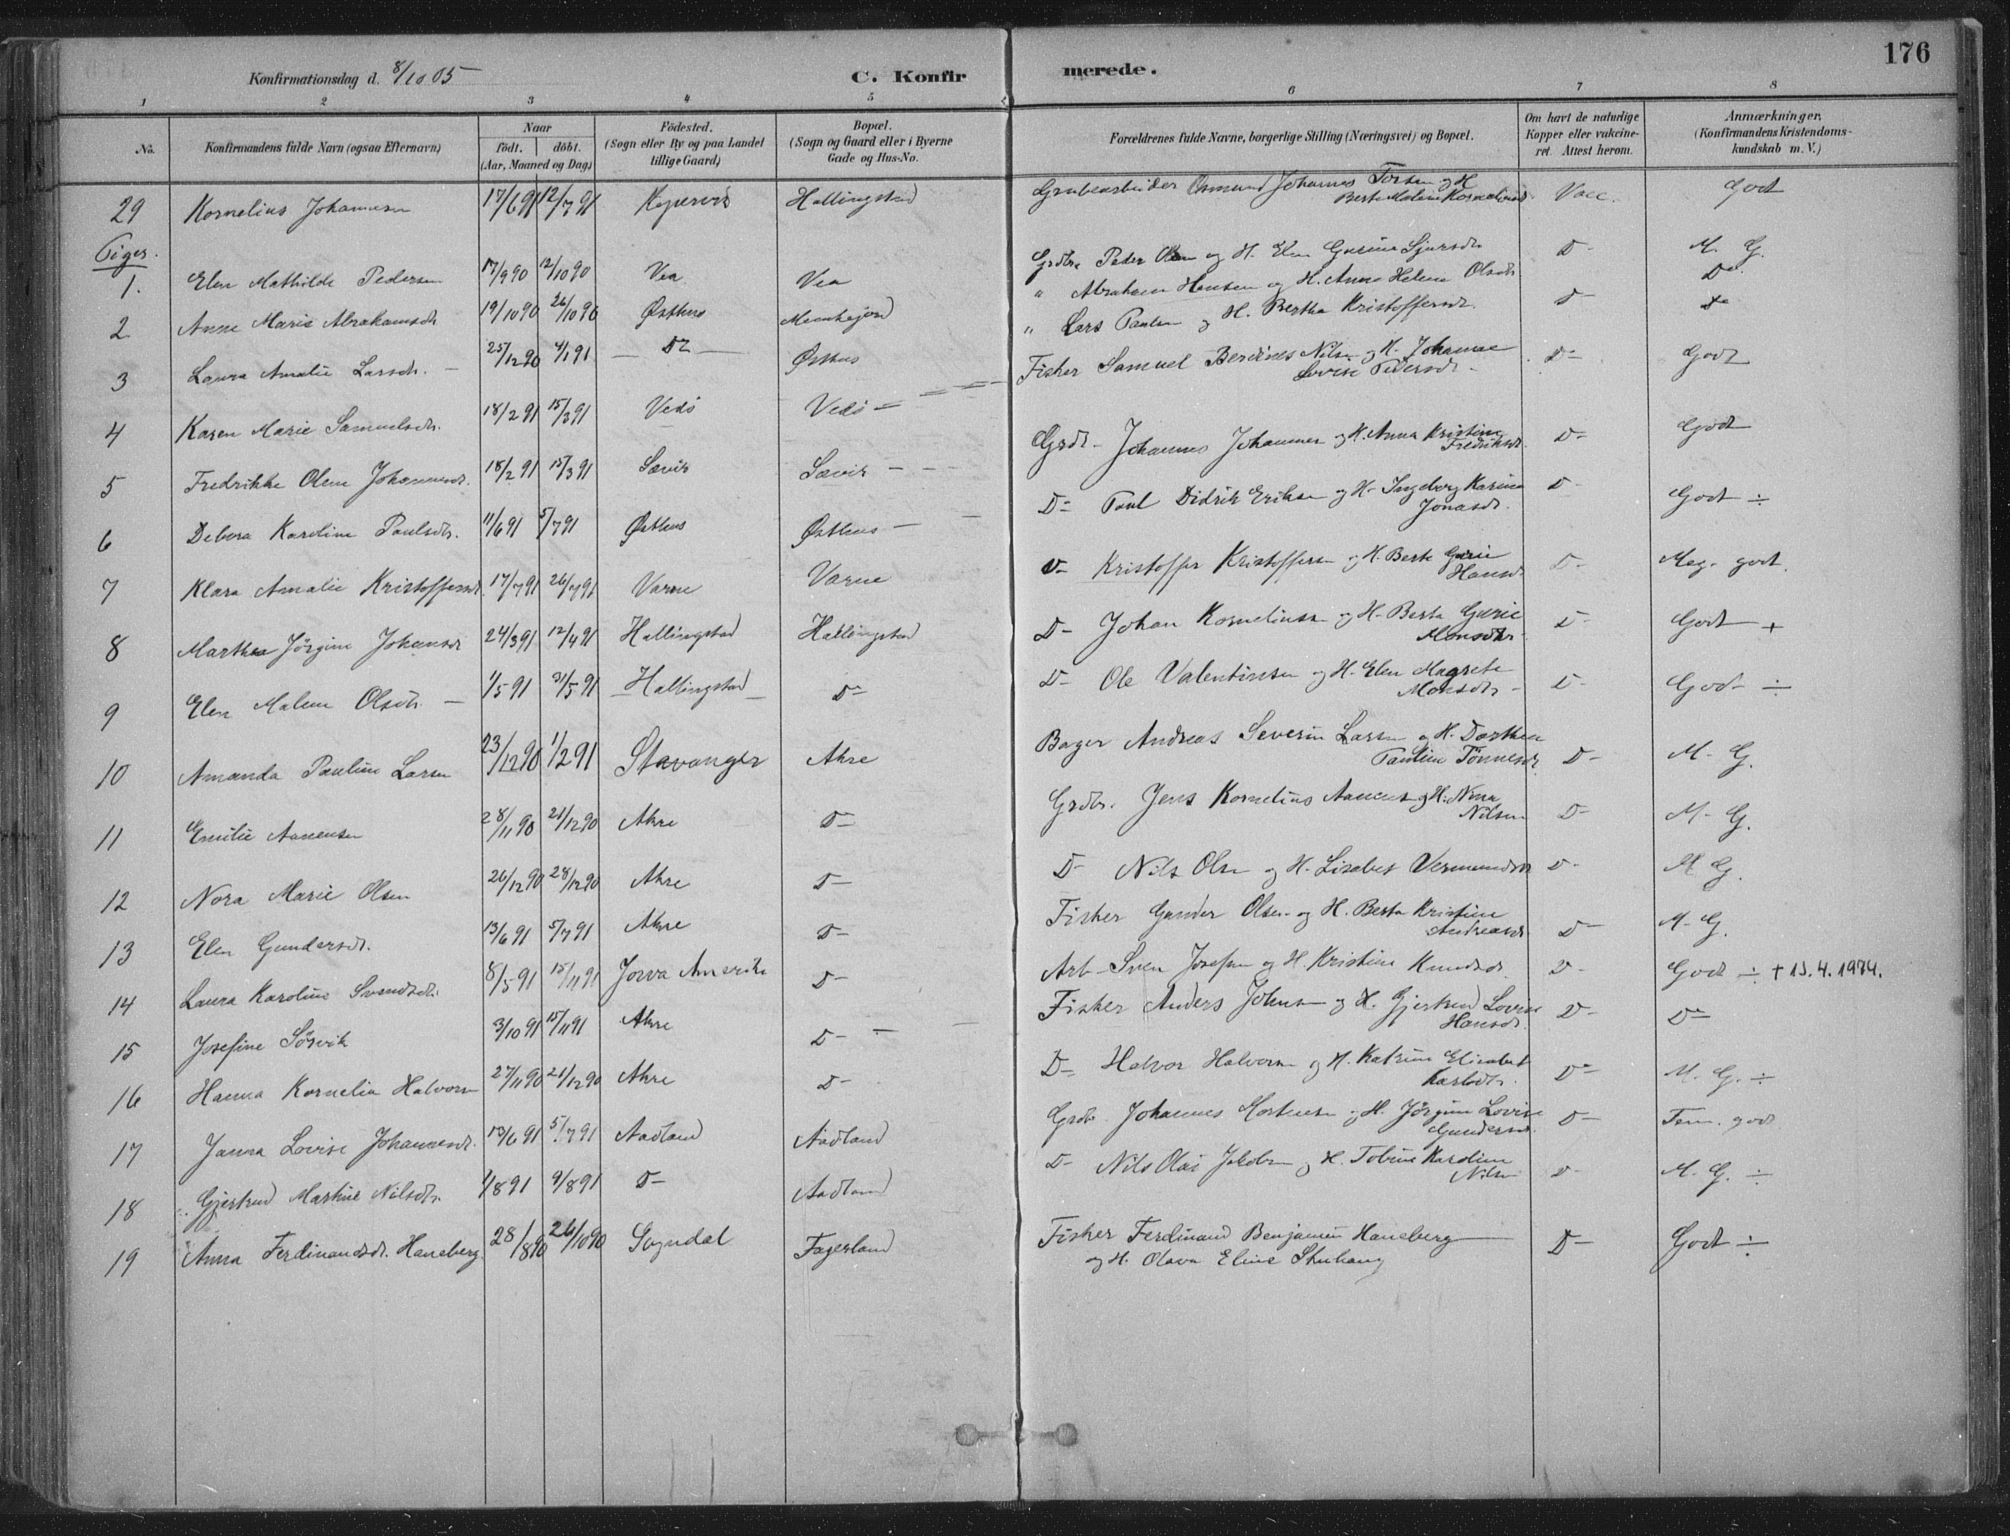 176
Konfirmationsdag d. 8/10 05
C. Konfirmerede.
1 2 3 4 5 6 7 8
No. Konfirmandens fulde Navn (ogsaa Efternavn) Naar födt. döbt. (Aar, Maaned og Dag) Födested. (Sogn eller By og paa Landet tillige Gaard) Bopæl. (Sogn og Gaard eller i Byerne Gade og Hus-No. Forældrenes fulde Navne, borgerlige Stilling (Næringsvei) og Bopæl. Om havt de naturlige Kopper eller vakcineret. Attest herom. Anmærkninger. (Konfirmandens Kristendomskundskab m. V.)
29 Kornelius Johannesen 17/6 91 12/7 91 Kopervik Hallingstad Grubearbeider Osmund Johannes Torsen og H. Berte Malene Korneliusd. Vacc. Godt
Piger.
1. Elen Mathilde Pedersen 17/9 90 12/10 90 Vea Vea Grdbr. Peder Olsen og H. Elen Gurine Sjursdr. D- M. G.
2 Anne Marie Abrahamsdr 19/10 90 26/10 90 Østhus " Abraham Hansen og H. Anne Helene Olsdr. Do
3 Laura Amalie Larsdr. 25/12 90 4/1 91 Do Østhus " Lars Paulsen og H. Bertha Kristoffersdr. D- Do
4 Karen Marie Samuelsdr. 18/2 91 15/3 91 Vedö Vedö Fisker Samuel Berdines Nilsen og H. Johanne Lovise Pedersdr. D- Godt
5 Fredrikke Olene Johannesdr. 18/2 91 15/3 91 Sævik Sævik Grdr. Johannes Johannesen og H. Anna Kristine Fredriksdr. D- Godt
6 Debora Karoline Paulsdr. 11/6 91 5/7 91 Østhus Østhus D- Paul Didrik Eriksen og H. Ingeborg Karina Jonasdr. D- Godt ÷
7 Klara Amalie Kristoffersdr. 17/7 91 26/7 91 Varne Varne D- Kristoffer Kristoffersen og H. Berte Gurie Hansdr. D- Meg. godt.
8 Marthea Jörgine Johansdr 24/3 91 12/4 91 Hallingstad Hallingstad D- Johan Korneliussen og H. Berta Gurie Monsdtr. D- Godt +
9 Elen Malene Olsdtr. 1/5 91 31/5 91 Hallingstad D- D- Ole Valentinsen og H. Elen Magrete Monsdtr. D- Godt ÷
10 Amanda Pauline Larsen 23/12 90 1/2 91 Stavanger Akre Bager Andreas Severin Larsen og H. Dorthea Pauline Tönnesdr. D- M. G.
11 Emilie Aanensen 28/11 90 21/12 90 Akre D- Grdbr. Jens Kornelius Aanensen og H. Nora Nilsen D- M. G.
12 Nora Marie Olsen 26/12 90 28/12 90 Akre D- D- Nils Olsen og H. Lisabet Vermundsdr D- M G.
13 Elen Gundersdr. 13/6 91 5/7 91 Akre D- Fisker Gunder Olsen og H. Berta Kristine Andreasdr D- M. G.
14 Laura Karoline Svendsdr. 8/5 91 15/11 91 Jowa Amerika D- Arb. Sven Josefsen og H. Kristine Knudsdr. D- Godt ÷ + 13.4.1974.
15 Josefine Sörvik 3/10 91 15/11 91 Akre D- Fisker Anders Johnsen og H. Gjertrud Lovise Hansdr. D- D-
16 Hanna Kornelia Halvorsen 27/11 90 21/12 90 Akre D- D- Halvor Halvorsen og H. Katrine Elisabet Larsdtr. D- M. G. ÷
17 Janna Lovise Johannesdr. 13/6 91 5/7 91 Aadland Aadland Grdb. Johannes Mortensen og H. Jörgine Lovise Gundersdr. D- Tem. godt
18 Gjertrud Martine Nilsdtr. 1/8 91 9/8 91 D- Aadland D- Nils Olai Jakobsen og H. Tobine Karoline Nilsen D- M. G. ÷
19 Anna Ferdinandsdr. Haneberg 28/8 90 26/10 90 Sogndal Fagerland Fisker Ferdinand Benjamin Haneberg D- Godt ÷
og H. Olava Eline